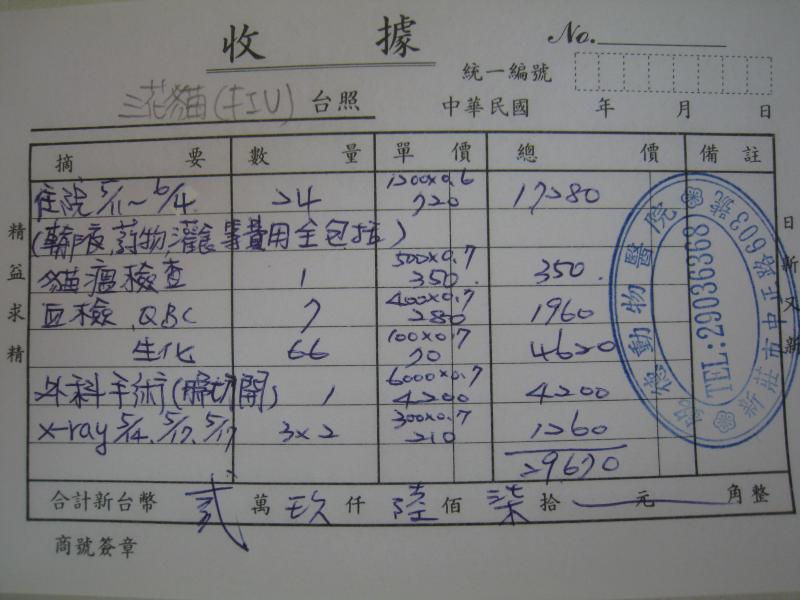 收據
No.
統一編號
三花貓(FIV) 台照
中華民國 年 月 日
摘要 數量 單價 總價 備註
住院 5/11~6/4 24 1200x0.6 720 17280
(輸液,藥物,灌食等費用全包括)
貓瘟檢查 1 500x0.7 350. 350.
血檢 QBC 7 400x0.7 280 1960
生化 66 100x0.7 70 4620
外科手術(腸切開) 1 6000x0.7 4200 4200
x-ray 5/14. 5/17. 5/17 3x2 300x0.7 210 1260
29670
合計新台幣 貳萬玖仟陸佰柒拾 元 角整
商號簽章
精益求精
日新又新
動物醫院
TEL:29036368
新莊市中正路603號